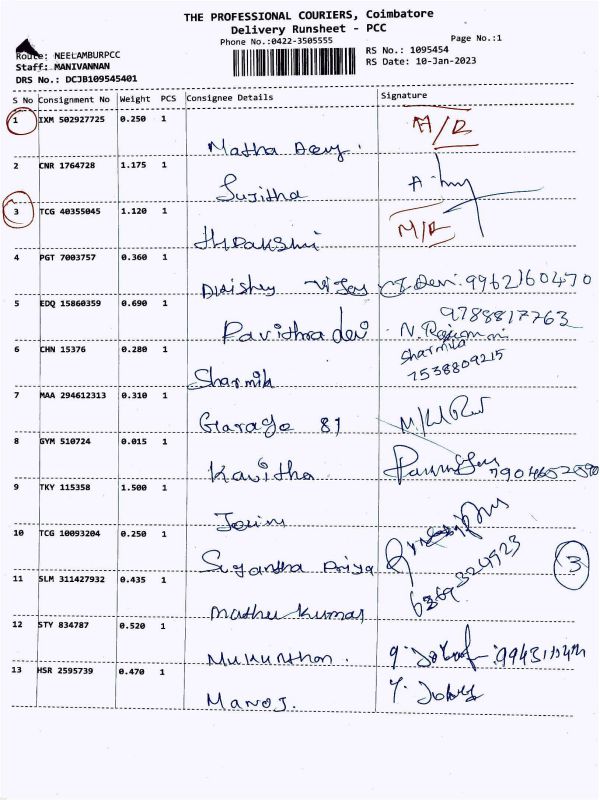 THE PROFESSIONAL COURIERS, Coimbatore
Delivery Runsheet - PCC
Phone No.:0422-3505555
Page No.:1
Route: NEELAMBURPCC
RS No.: 1095454
Staff: MANIVANNAN
RS Date: 10-Jan-2023
DRS No.: DCJB109545401
S No Consignment No Weight PCS Consignee Details Signature
1 IXM 502927725 0.250 1
Matha
2 CNR 1764728 1.175 1
Sujitha
3 TCG 40355045 1.120 1
M/R
4 PGT 7003757 0.360 1
Vijay Devi. 9962160470
5 EDQ 15860359 0.690 1
Pavithra devi 9788817763
6 CHN 15376 0.280 1
Sharmila
7538809215
Sharmila
7 MAA 294612313 0.310 1
Garage 81
8 GYM 510724 0.015 1
Kavitha
9 TKY 115358 1.500 1
10 TCG 10093204 0.250 1
Priya
6369324923
3
11 SLM 311427932 0.435 1
Mathu Kumar
12 STY 834787 0.520 1
Mukunthan.
13 HSR 2595739 0.470 1
Manoj.